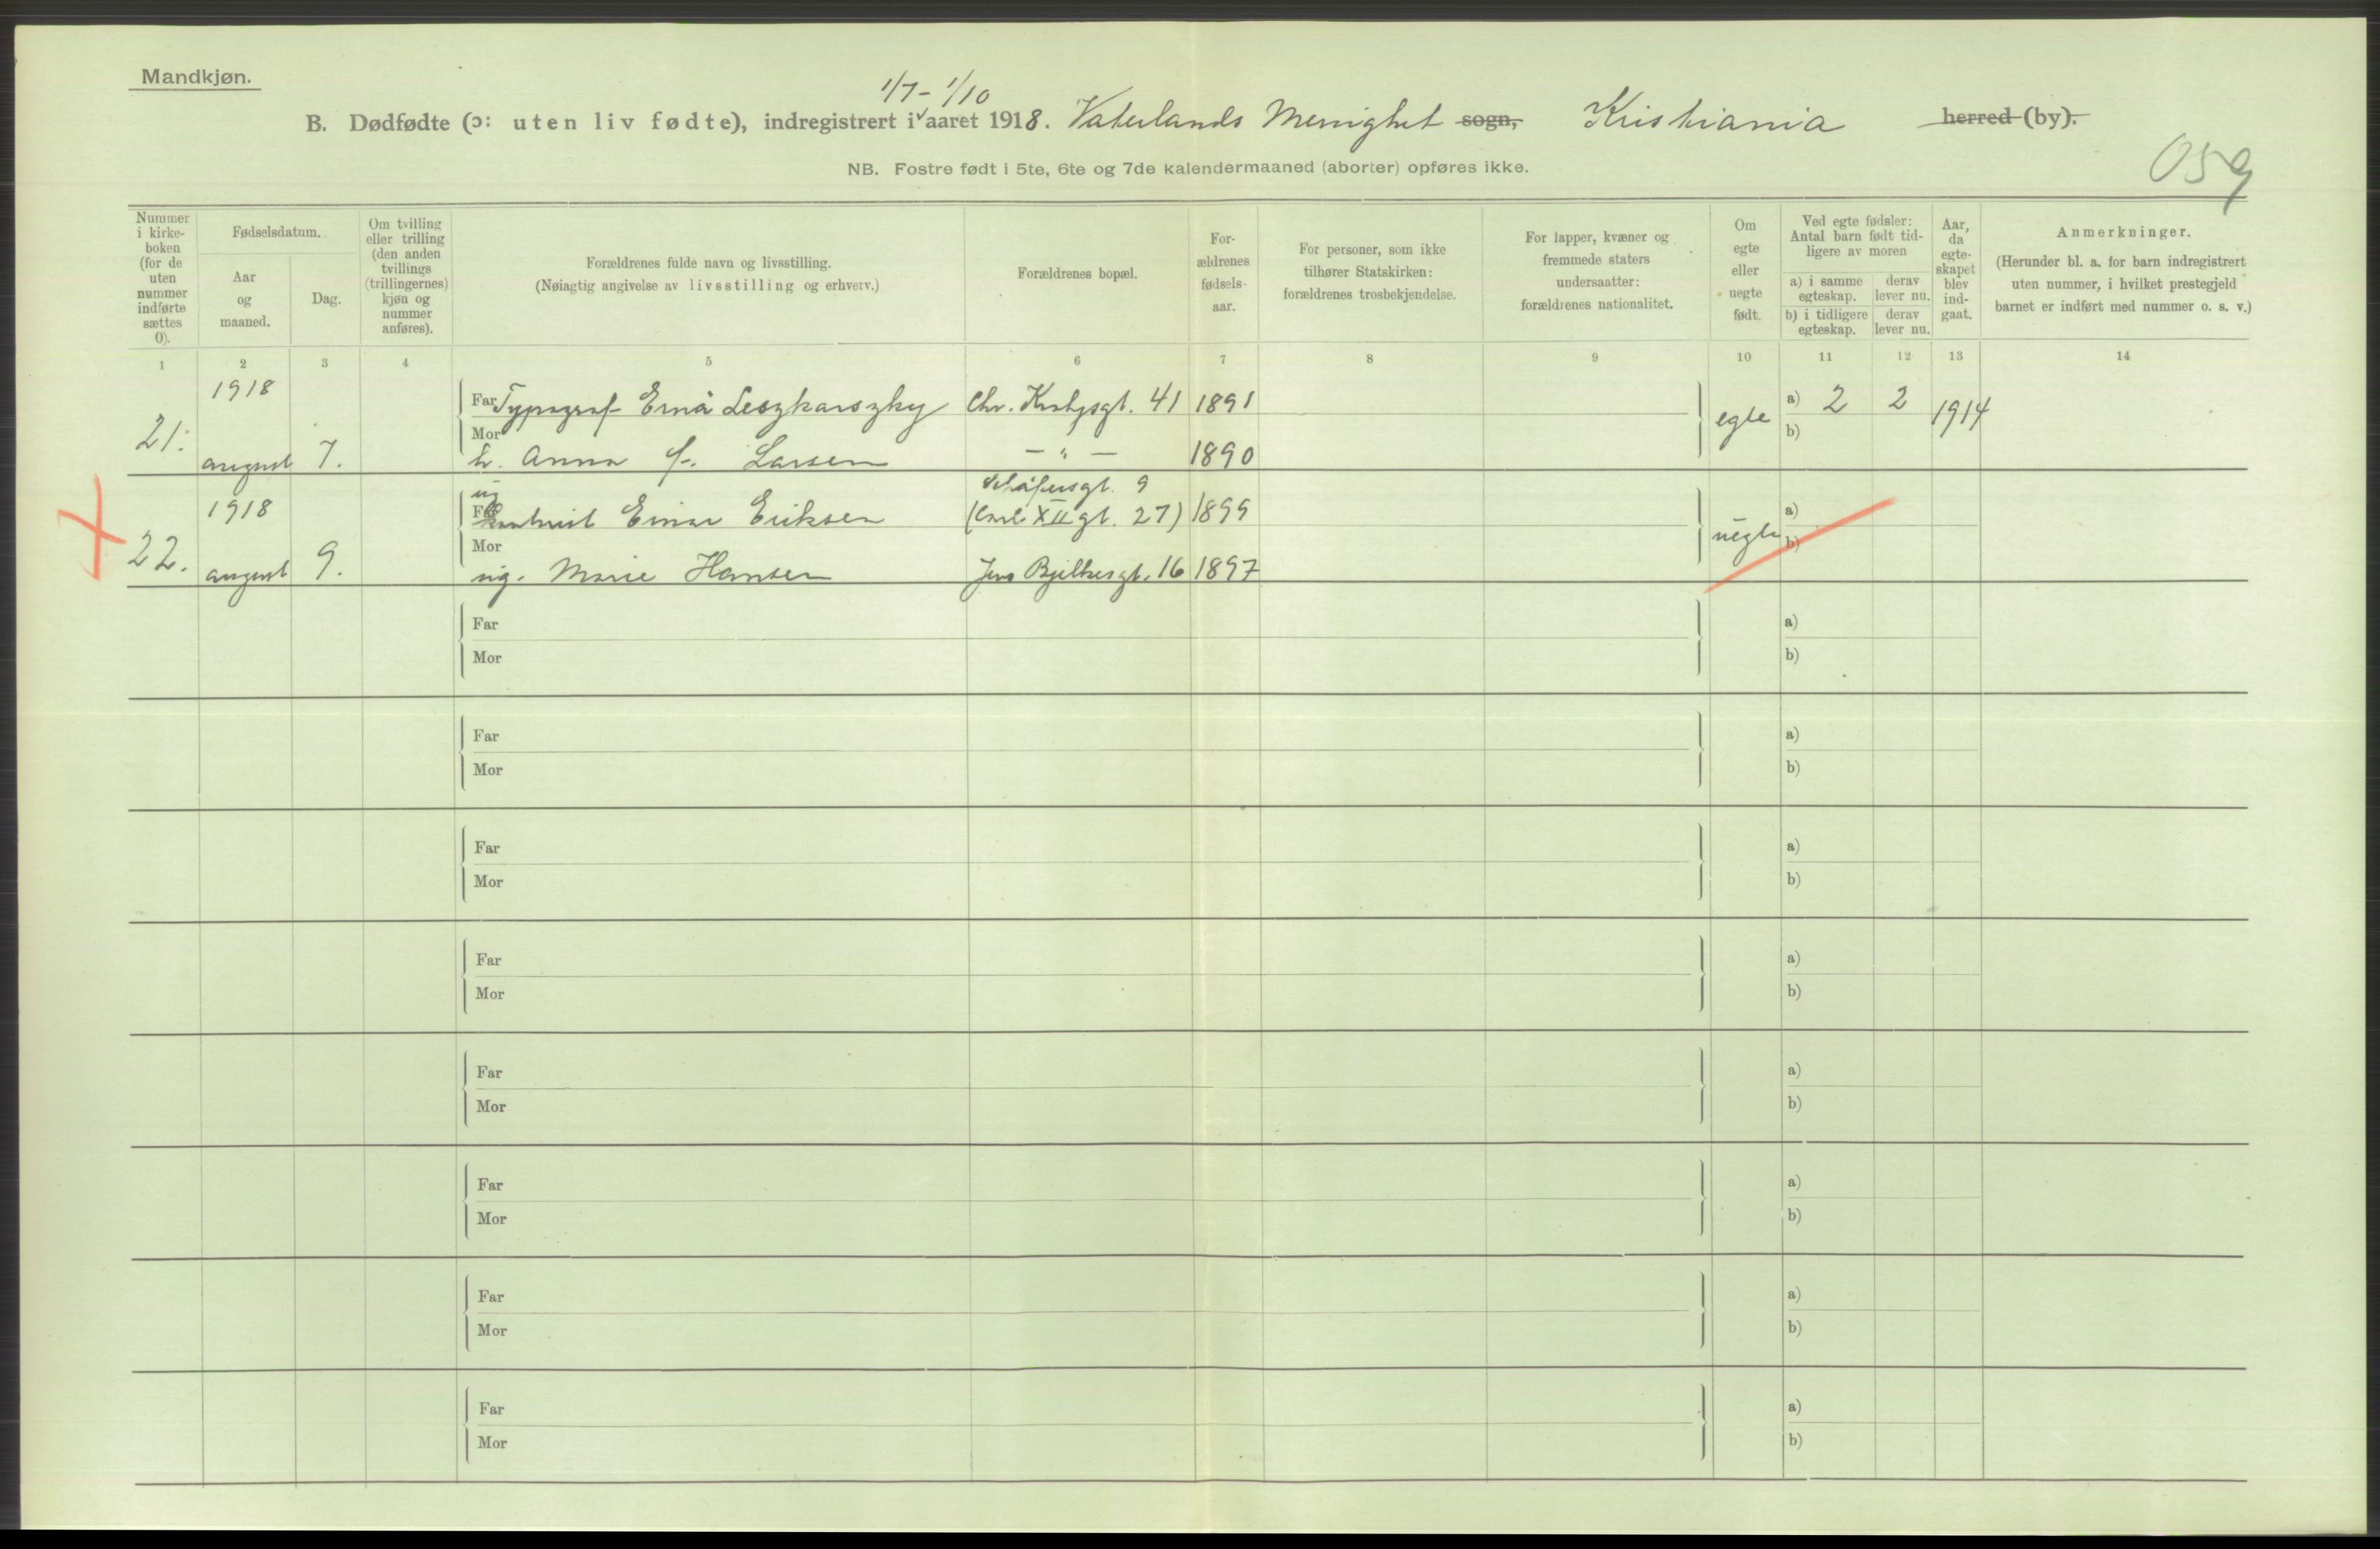 Mandkjøn.
1/7 - 1/10
B. Dødfødte (ɔ: uten liv fødte), indregistrert i aaret 1918. Vaterlands Menighet sogn, Kristiania herred (by).
NB. Fostre født i 5te, 6te og 7de kalendermaaned (aborter) opføres ikke.
059
Nummer i kirke-boken (for de uten nummer indførte sættes 0).
Fødselsdatum.
Aar og maaned.
Dag.
Om tvilling eller trilling (den anden tvillings (trillingernes) kjøn og nummer anføres).
Forældrenes fulde navn og livsstilling.
(Nøiagtig angivelse av livsstilling og erhverv.)
Forældrenes bopæl.
For-ældrenes fødsels-aar.
For personer, som ikke tilhører Statskirken: forældrenes trosbekjendelse.
For lapper, kvæner og fremmede staters undersaatter: forældrenes nationalitet.
Om egte eller uegte født.
Ved egte fødsler: Antal barn født tid-ligere av moren
a) i samme egteskap.
derav lever nu.
b) i tidligere egteskap.
derav lever nu.
Aar, da egte-skapet blev ind-gaat.
Anmerkninger.
(Herunder bl. a. for barn indregistrert uten nummer, i hvilket prestegjeld barnet er indført med nummer o. s. v.)
1 2 3 4 5 6 7 8 9 10 11 12 13 14
1918
Far Typograf Ernå Leszkarszky Chr. Krohgsgt. 41 1891
21. august 7. egte a) 2 2 1914
b)
Mor h. Anna f. Larsen - " - 1890
1918
ug Schäfersgt. 9
Far Einar Eriksen (Carl XII gt. 27) 1899
22. august 9. uegte a)
b)
Mor ug. Marie Hansen Jens Bjelkesgt. 16 1897
Far a)
Mor b)
Far a)
Mor b)
Far a)
Mor b)
Far a)
Mor b)
Far a)
Mor b)
Far a)
Mor b)
Far a)
Mor b)
Far a)
Mor b)